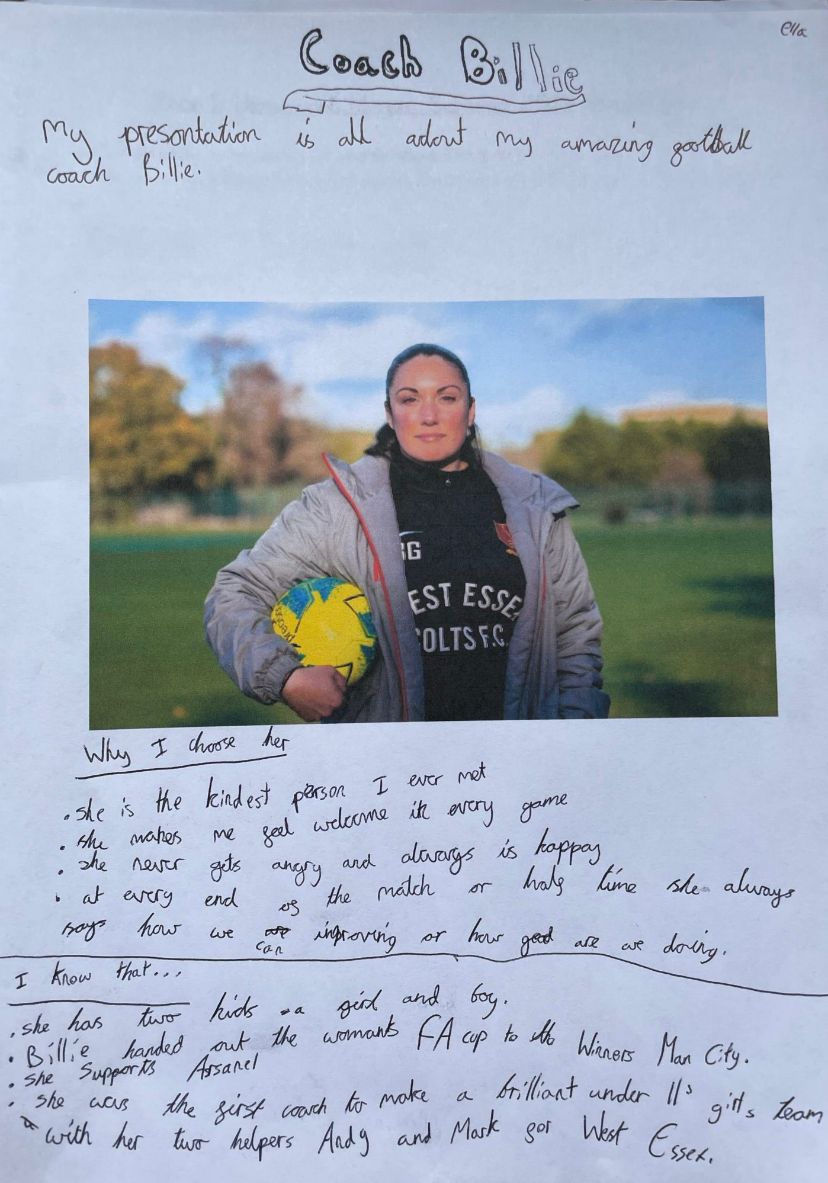 Ella
Coach Billie
My presontation is all adout my amazing gootball
coach Billie.
GG
EST ESSE
COLTS F.C.
Why I choose her
• she is the kindest person I ever met
• she makes me geel welcome in every game
• she never gets angry and always is happy
• at every end og the match or halg time she always
says how we can improving or how good are we doing.
I know that...
• she has two kids a girl and boy.
• Billie handed out the womans FA cup to the Winners Man City.
• She Supports Arsanel
• she was the girst coach to make a brilliant under 11s girls team
with her two helpers Andy and Mark gor West Essex.